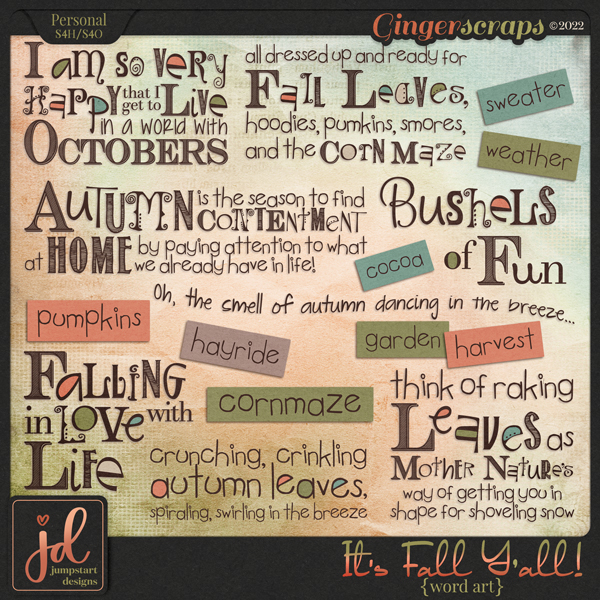 Personal
S4H/S4O
Gingerscraps ©2022
I am so very
Happy that I get to Live
in a world with
Octobers
all dressed up and ready for
Fall Leaves,
hoodies, pumkins, smores,
and the corn maze
sweater
weather
Autumn is the season to find
contentment
at Home by paying attention to what
we already have in life!
Bushels
of Fun
cocoa
Oh, the smell of autumn dancing in the breeze...
pumpkins
hayride
garden
harvest
cornmaze
Falling
in Love with
Life
crunching, crinkling
autumn leaves,
spiraling, swirling in the breeze
think of raking
Leaves as
Mother Nature's
way of getting you in
shape for shoveling snow
jd
jumpstart
designs
It's Fall Y'all!
{word art}